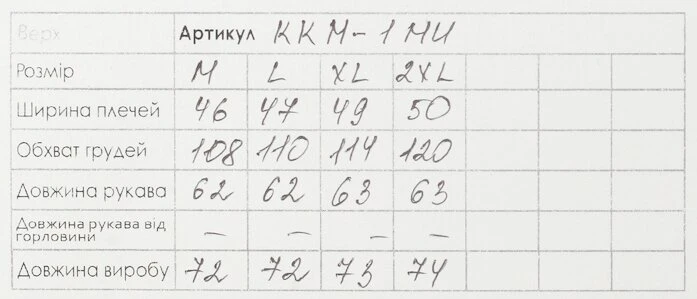 Верх Артикул ККМ-1МИ
Розмір M L XL 2XL
Ширина плечей 46 47 49 50
Обхват грудей 108 110 114 120
Довжина рукава 62 62 63 63
Довжина рукава від
горловини – – – –
Довжина виробу 72 72 73 74